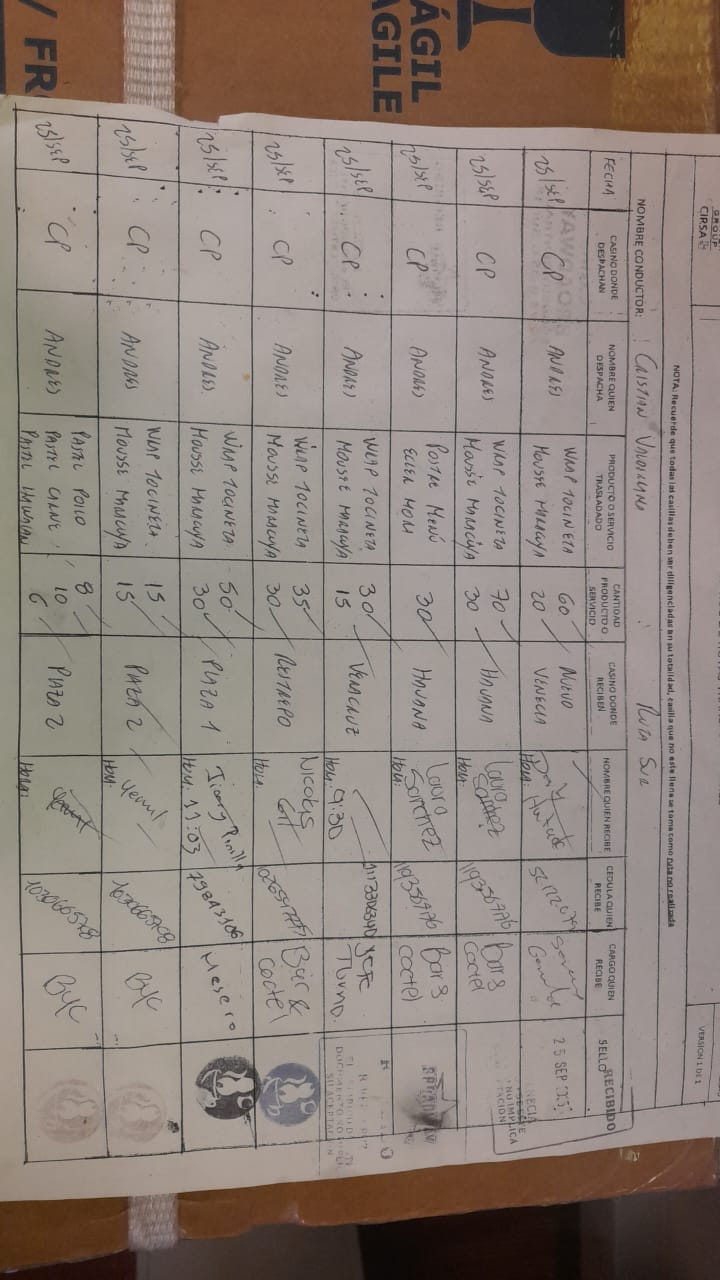 ÁGIL
AGILE
/ FR
GROUP
CIRSA
VERSION 1 DE 1
NOTA: Recuerde que todas las casillas deben ser diligenciadas en su totalidad, casilla que no este llena se toma como ruta no realizada
NOMBRE CONDUCTOR: CRISTIAN RUTA SUR
FECHA CASINO DONDE DESPACHAN NOMBRE QUIEN DESPACHA PRODUCTO O SERVICIO TRASLADADO CANTIDAD PRODUCTO O SERVICIO CASINO DONDE RECIBEN NOMBRE QUIEN RECIBE CEDULA QUIEN RECIBE CARGO QUIEN RECIBE SELLO RECIBIDO
25/SEP CP ANDRES WRAP TOCINETA 60 NUEVO
MOUSSE MARACUYA 20 VENECIA Hora: 25 SEP
25/SEP CP ANDRES WRAP TOCINETA 70 HAVANA Laura Bar &
MOUSSE MARACUYA 30 Hora: Sanchez Coctel
25/SEP CP ANDRES POSTRE MENÚ 30 HAVANA Laura Bar &
MORA Hora: Sanchez Coctel
25/SEP CP ANDRES WRAP TOCINETA 30 VERACRUZ Jefe
MOUSSE MARACUYA 15 Hora: 9:30 Turno.
25/SEP CP ANDRES WRAP TOCINETA 35 RESTREPO Nicolas Bar &
MOUSSE MARACUYA 30 Hora: Gil Coctel
25/SEP CP ANDRES WRAP TOCINETA 50 PLAZA 1 Pinilla 79843106 Mesero
MOUSSE MARACUYA 30 Hora: 11:03
25/SEP CP ANDRES WRAP TOCINETA 15 PLAZA 2 ByC
MOUSSE MARACUYA 15 Hora:
25/SEP CP ANDRES PASTEL POLLO 8 PLAZA 2 ByC
PASTEL CARNE 10
PASTEL 6 Hora: